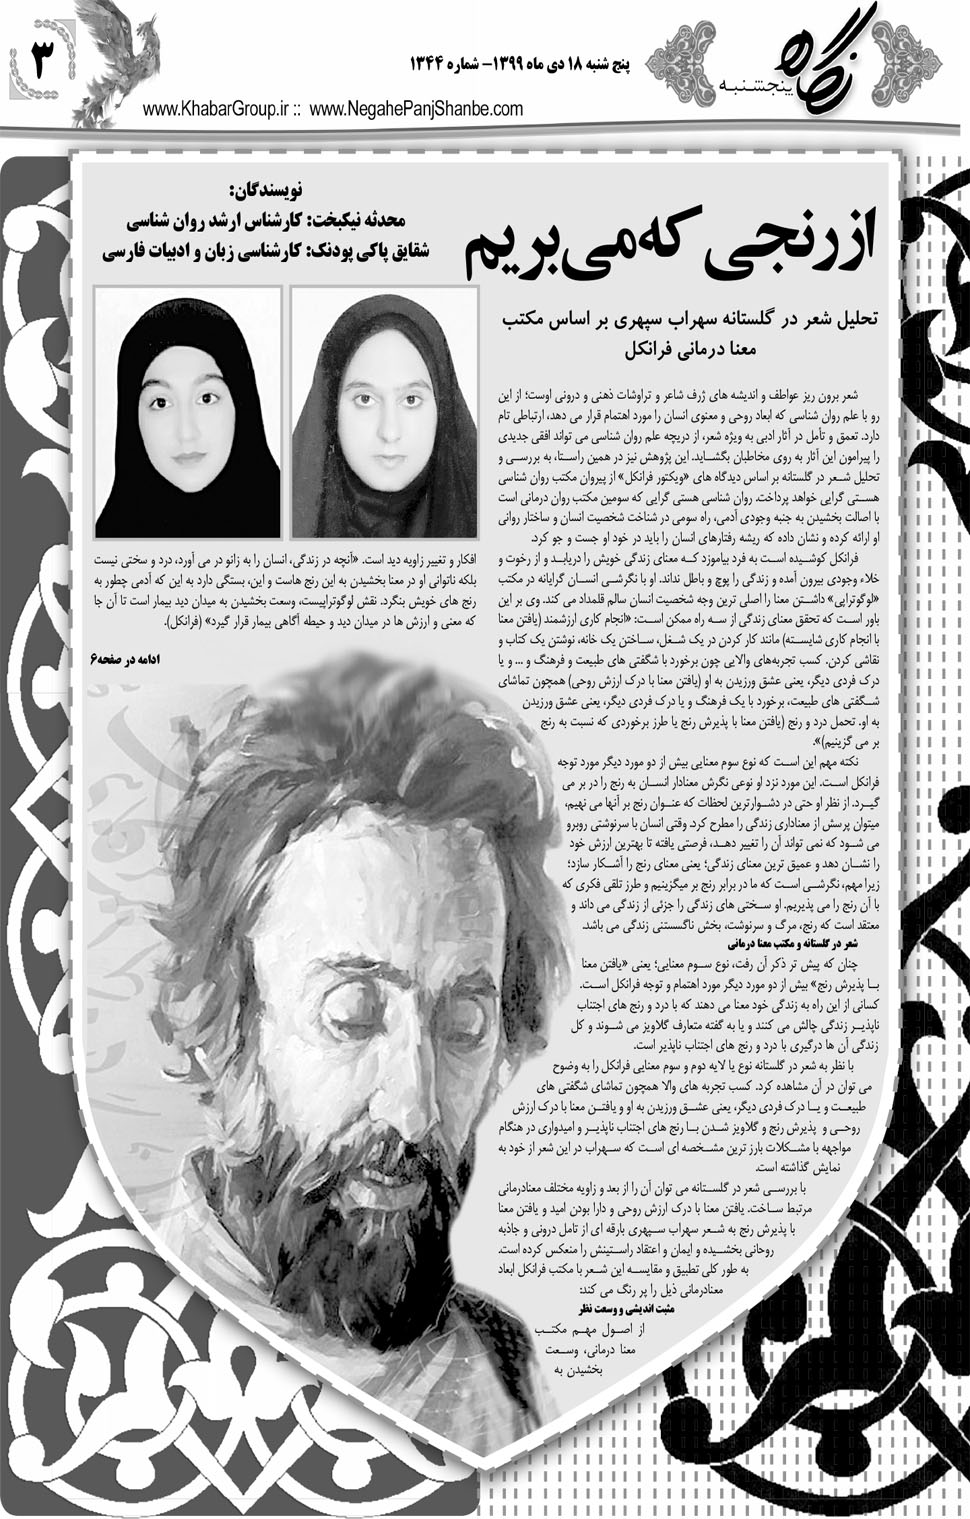 ۳
پنج شنبه ۱۸ دی ماه ۱۳۹۹- شماره ۱۳۴۴
نگاه
پنجشنبه
www.KhabarGroup.ir :: www.NegahePanjShanbe.com
از رنجی که می‌بریم
تحلیل شعر در گلستانه سهراب سپهری بر اساس مکتب
معنا درمانی فرانکل
نویسندگان:
محدثه نیکبخت: کارشناس ارشد روان شناسی
شقایق پاکی پودنک: کارشناسی زبان و ادبیات فارسی
شعر برون ریز عواطف و اندیشه های ژرف شاعر و تراوشات ذهنی و درونی اوست؛ از این
رو با علم روان شناسی که ابعاد روحی و معنوی انسان را مورد اهتمام قرار می دهد، ارتباطی تام
دارد. تعمق و تأمل در آثار ادبی به ویژه شعر، از دریچه علم روان شناسی می تواند افقی جدیدی
را پیرامون این آثار به روی مخاطبان بگشاید. این پژوهش نیز در همین راستا، به بررسی و
تحلیل شعر در گلستانه بر اساس دیدگاه های «ویکتور فرانکل» از پیروان مکتب روان شناسی
هستی گرایی خواهد پرداخت. روان شناسی هستی گرایی که سومین مکتب روان درمانی است
با اصالت بخشیدن به جنبه وجودی آدمی، راه سومی در شناخت شخصیت انسان و ساختار روانی
او ارائه کرده و نشان داده که ریشه رفتارهای انسان را باید در خود او جست و جو کرد.
فرانکل کوشیده است به فرد بیاموزد که معنای زندگی خویش را دریابد و از رخوت و
خلاء وجودی بیرون آمده و زندگی را پوچ و باطل نداند. او با نگرشی انسان گرایانه در مکتب
«لوگوتراپی» داشتن معنا را اصلی ترین وجه شخصیت انسان سالم قلمداد می کند. وی بر این
باور است که تحقق معنای زندگی از سه راه ممکن است: «انجام کاری ارزشمند (یافتن معنا
با انجام کاری شایسته) مانند کار کردن در یک شغل، ساختن یک خانه، نوشتن یک کتاب و
نقاشی کردن. کسب تجربه‌های والایی چون برخورد با شگفتی های طبیعت و فرهنگ و ... و یا
درک فردی دیگر، یعنی عشق ورزیدن به او (یافتن معنا با درک ارزش روحی) همچون تماشای
شگفتی های طبیعت، برخورد با یک فرهنگ و یا درک فردی دیگر، یعنی عشق ورزیدن
به او. تحمل درد و رنج (یافتن معنا با پذیرش رنج یا طرز برخوردی که نسبت به رنج
بر می گزینیم)».
نکته مهم این است که نوع سوم معنایی بیش از دو مورد دیگر مورد توجه
فرانکل است. این مورد نزد او نوعی نگرش معنادار انسان به رنج را در بر می
گیرد. از نظر او حتی در دشوارترین لحظات که عنوان رنج بر آنها می نهیم،
میتوان پرسش از معناداری زندگی را مطرح کرد. وقتی انسان با سرنوشتی روبرو
می شود که نمی تواند آن را تغییر دهد، فرصتی یافته تا بهترین ارزش خود
را نشان دهد و عمیق ترین معنای زندگی؛ یعنی معنای رنج را آشکار سازد؛
زیرا مهم، نگرشی است که ما در برابر رنج بر میگزینیم و طرز تلقی فکری که
با آن رنج را می پذیریم. او سختی های زندگی را جزئی از زندگی می داند و
معتقد است که رنج، مرگ و سرنوشت، بخش ناگسستنی زندگی می باشد.
شعر در گلستانه و مکتب معنا درمانی
چنان که پیش تر ذکر آن رفت، نوع سوم معنایی؛ یعنی «یافتن معنا
با پذیرش رنج» بیش از دو مورد دیگر مورد اهتمام و توجه فرانکل است.
کسانی از این راه به زندگی خود معنا می دهند که با درد و رنج های اجتناب
ناپذیر زندگی چالش می کنند و یا به گفته متعارف گلاویز می شوند و کل
زندگی آن ها درگیری با درد و رنج های اجتناب ناپذیر است.
با نظر به شعر در گلستانه نوع یا لایه دوم و سوم معنایی فرانکل را به وضوح
می توان در آن مشاهده کرد. کسب تجربه های والا همچون تماشای شگفتی های
طبیعت و یا درک فردی دیگر، یعنی عشق ورزیدن به او و یافتن معنا با درک ارزش
روحی و پذیرش رنج و گلاویز شدن با رنج های اجتناب ناپذیر و امیدواری در هنگام
مواجهه با مشکلات بارز ترین مشخصه ای است که سهراب در این شعر از خود به
نمایش گذاشته است.
با بررسی شعر در گلستانه می توان آن را از بعد و زاویه مختلف معنادرمانی
مرتبط ساخت. یافتن معنا با درک ارزش روحی و دارا بودن امید و یافتن معنا
با پذیرش رنج به شعر سهراب سپهری بارقه ای از تامل درونی و جاذبه
روحانی بخشیده و ایمان و اعتقاد راستینش را منعکس کرده است.
به طور کلی تطبیق و مقایسه این شعر با مکتب فرانکل ابعاد
معنادرمانی ذیل را پر رنگ می کند:
مثبت اندیشی و وسعت نظر
از اصول مهم مکتب
معنا درمانی، وسعت
بخشیدن به
افکار و تغییر زاویه دید است. «آنچه در زندگی، انسان را به زانو در می آورد، درد و سختی نیست
بلکه ناتوانی او در معنا بخشیدن به این رنج هاست و این، بستگی دارد به این که آدمی چطور به
رنج های خویش بنگرد. نقش لوگوتراپیست، وسعت بخشیدن به میدان دید بیمار است تا آن جا
که معنی و ارزش ها در میدان دید و حیطه آگاهی بیمار قرار گیرد» (فرانکل).
ادامه در صفحه۶